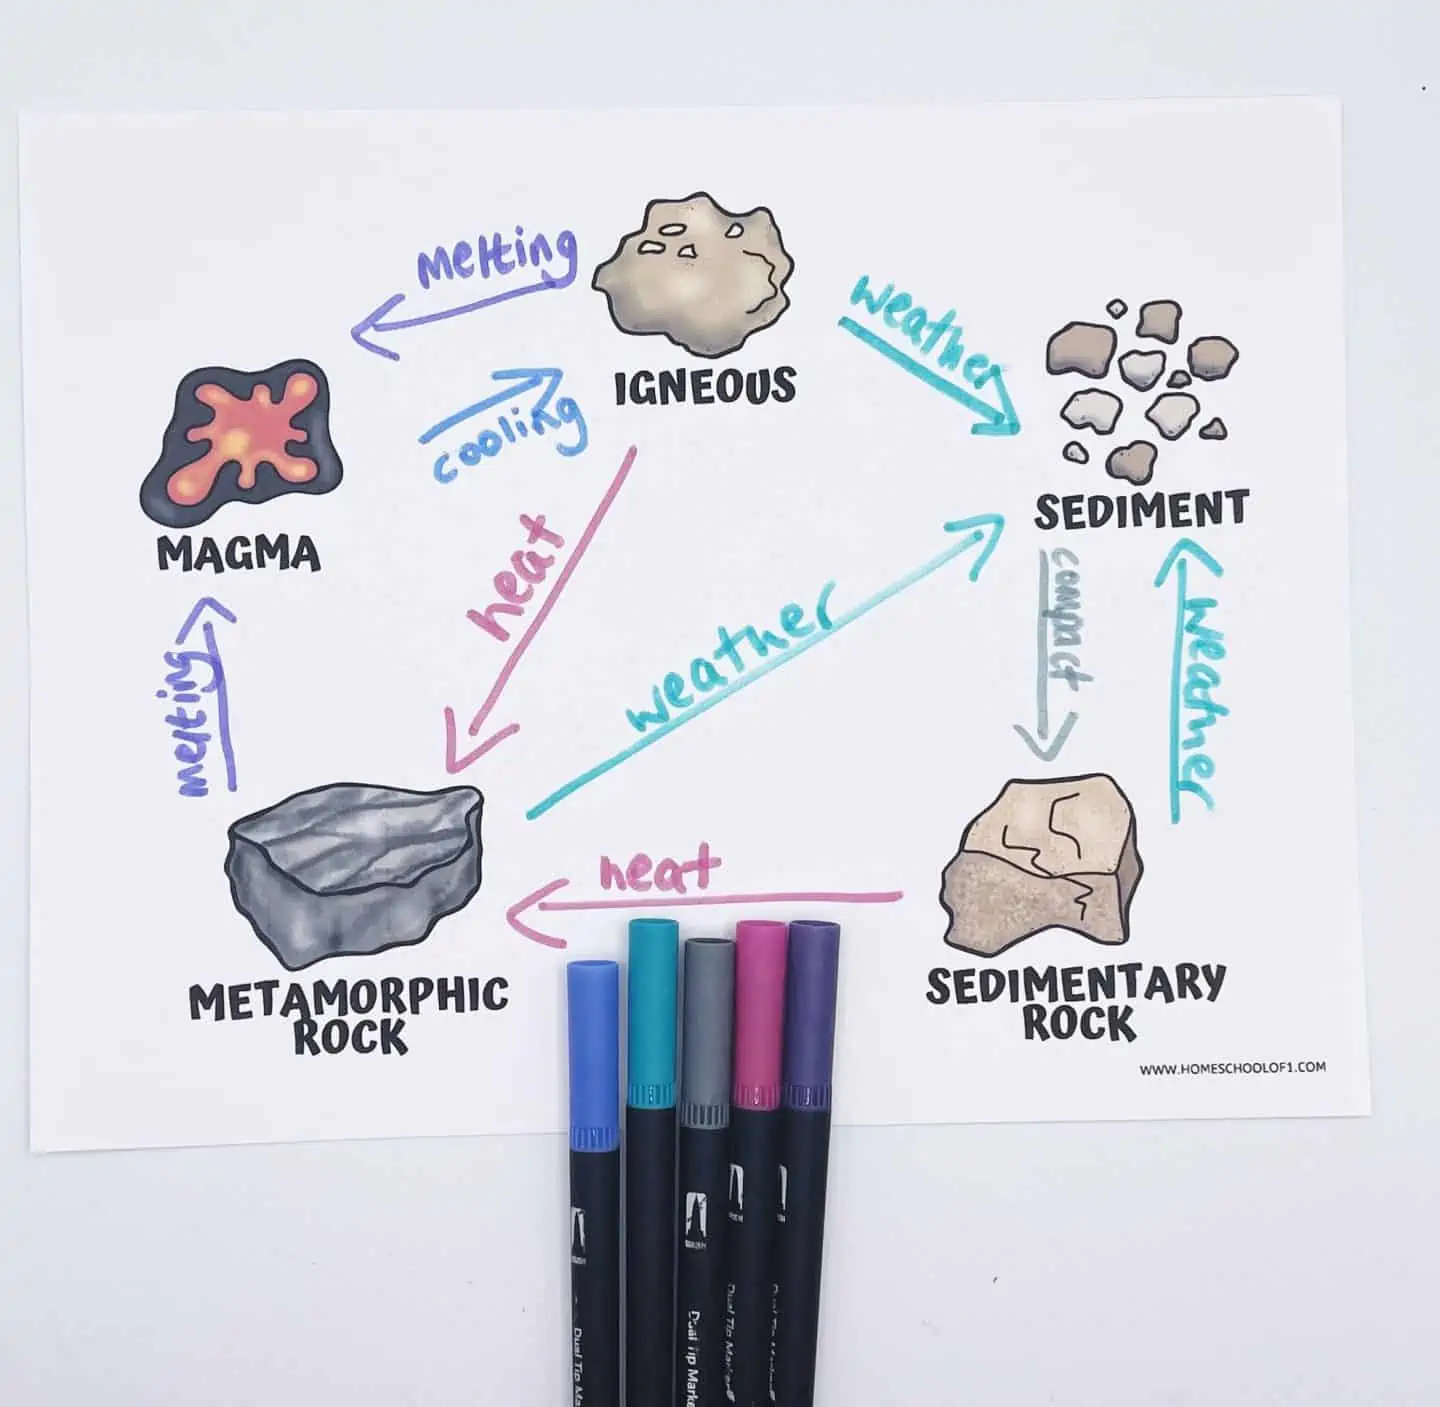 melting
IGNEOUS
weather
cooling
MAGMA
SEDIMENT
heat
weather
compact
weather
melting
heat
METAMORPHIC
ROCK
SEDIMENTARY
ROCK
WWW.HOMESCHOOLOF1.COM
Dual Tip Ma
Dual Tip Marke
Dual Tip Marker